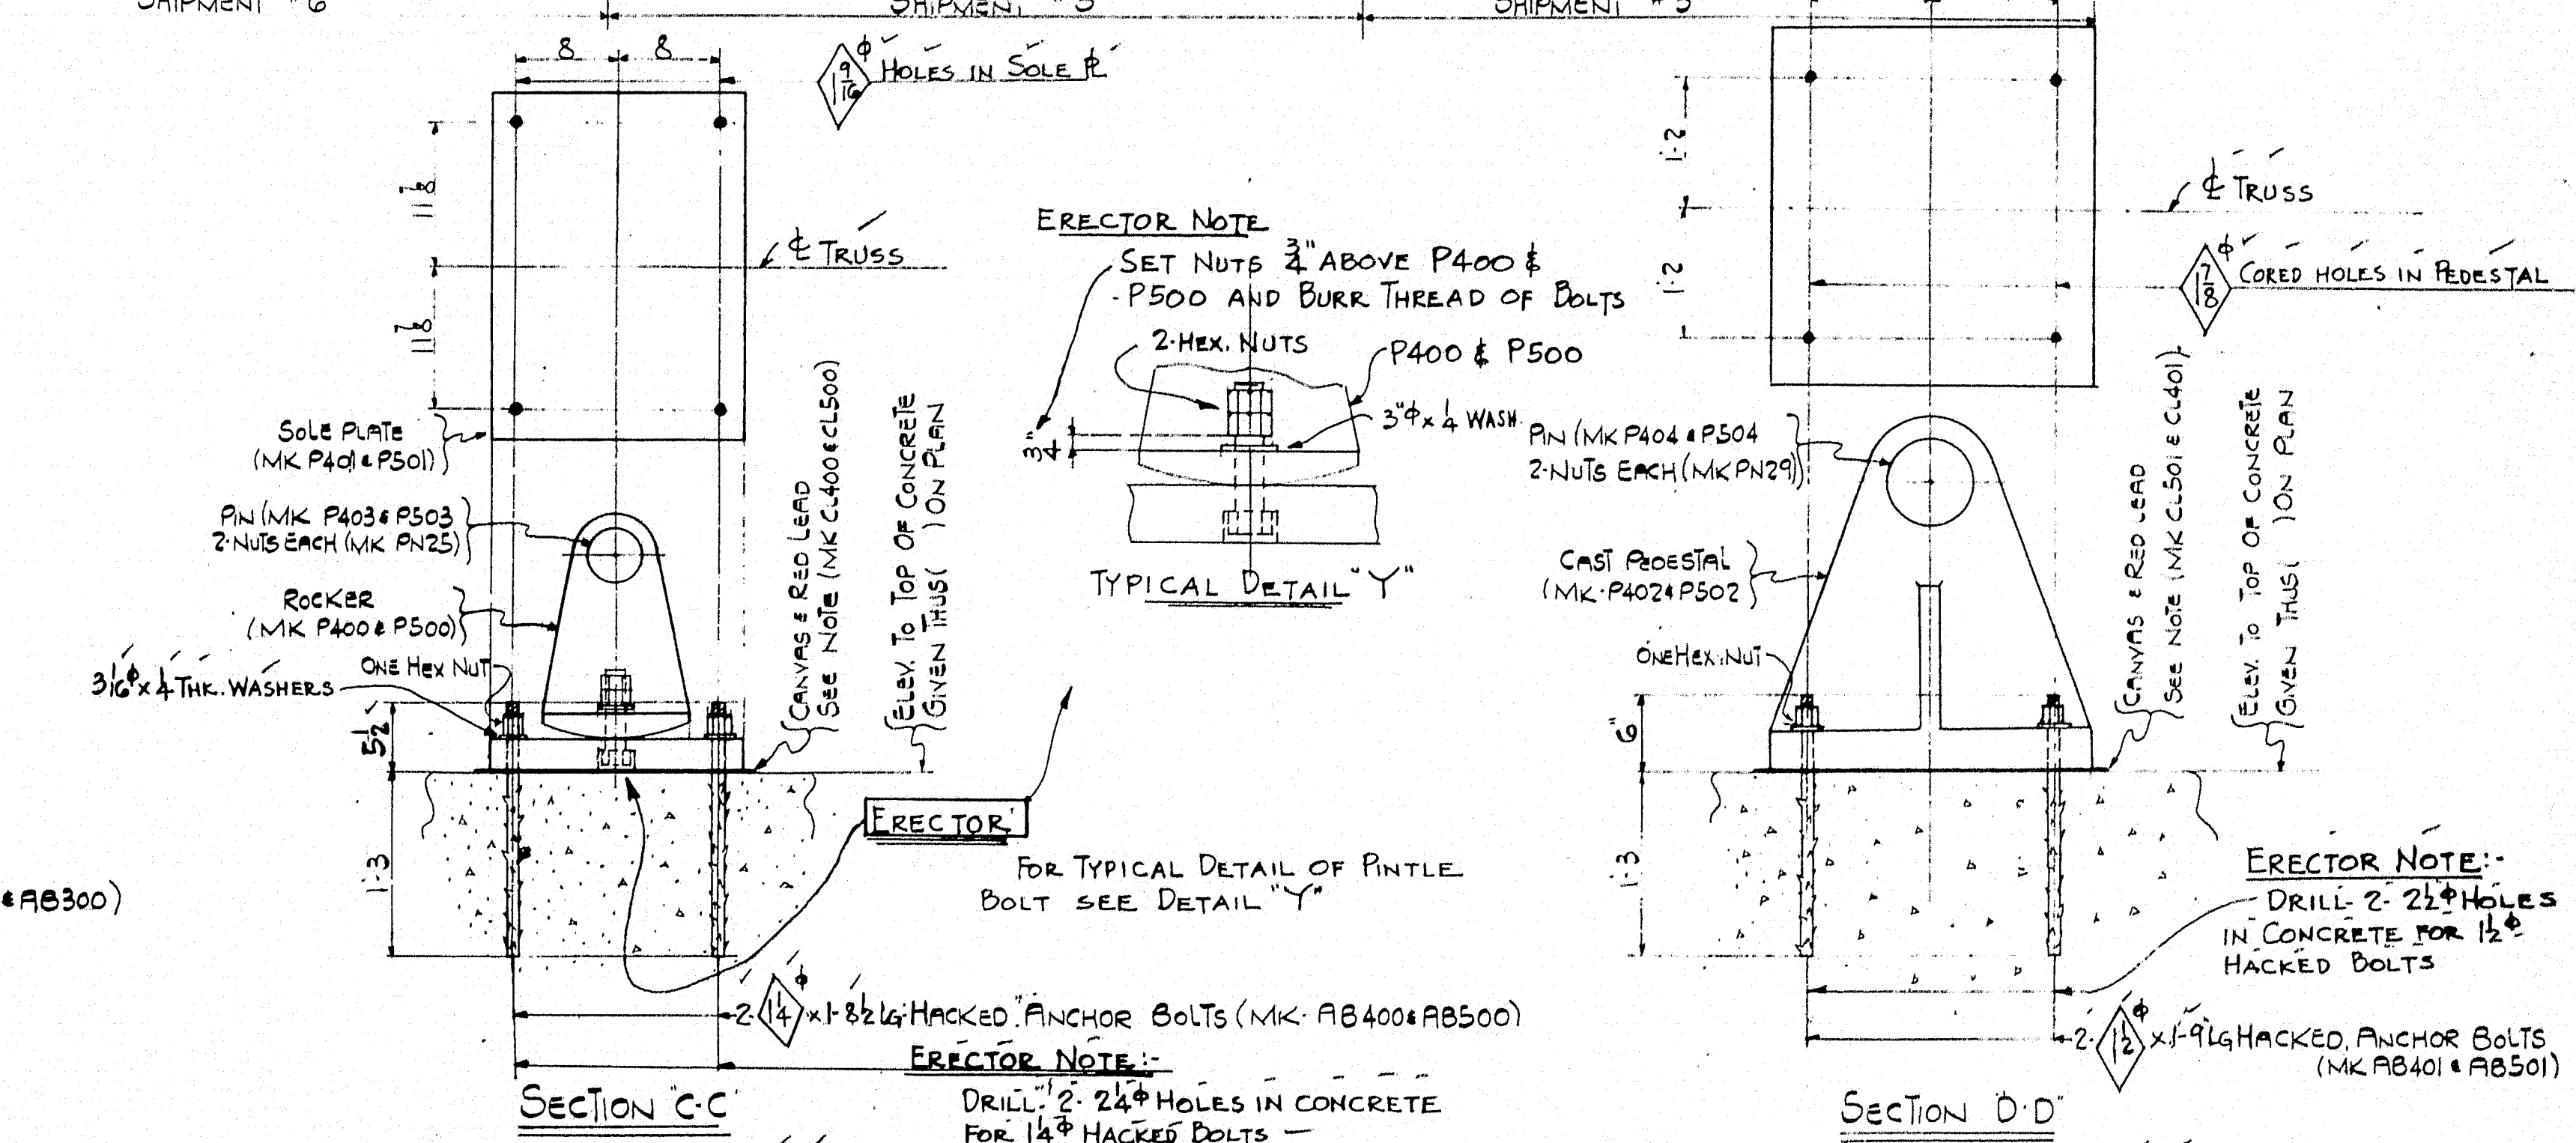 SHIPMENT #6
SHIPMENT #5
SHIPMENT #5
8 8
1 9/16 φ HOLES IN SOLE ℙL
11 7/8
11 7/8
℄ TRUSS
SOLE PLATE
(MK P401 & P501)
PIN (MK P403 & P503
2-NUTS EACH (MK PN25)
ROCKER
(MK P400 & P500)
ONE HEX NUT
3 1/16 φ x 1/4 THK. WASHERS
5 1/2
1-3
& AB300)
CANVAS & RED LEAD
SEE NOTE (MK CL400 & CL500)
ELEV. TO TOP OF CONCRETE
GIVEN THUS( ) ON PLAN
ERECTOR NOTE
SET NUTS 3/4" ABOVE P400 &
P500 AND BURR THREAD OF BOLTS
2-HEX. NUTS
P400 & P500
3"φ x 1/4 WASH.
3/4"
TYPICAL DETAIL "Y"
ERECTOR
FOR TYPICAL DETAIL OF PINTLE
BOLT SEE DETAIL "Y"
2- 1 1/4 φ x 1-8 1/2 LG. HACKED ANCHOR BOLTS (MK. AB400 & AB500)
ERECTOR NOTE:-
DRILL 2- 2 1/4 φ HOLES IN CONCRETE
FOR 1 1/4 φ HACKED BOLTS —
SECTION "C-C"
1-2
1-2
℄ TRUSS
1 7/8 φ CORED HOLES IN PEDESTAL
PIN (MK P404 & P504
2-NUTS EACH (MK PN29)
CAST PEDESTAL
(MK. P402 & P502
ONE HEX. NUT
6"
1-3
CANVAS & RED LEAD
SEE NOTE (MK CL501 & CL401)
ELEV. TO TOP OF CONCRETE
GIVEN THUS( ) ON PLAN
ERECTOR NOTE:-
DRILL- 2- 2 1/2 φ HOLES
IN CONCRETE FOR 1 1/2 φ
HACKED BOLTS
2- 1 1/2 φ x 1-9 LG HACKED ANCHOR BOLTS
(MK AB401 & AB501)
SECTION "D-D"